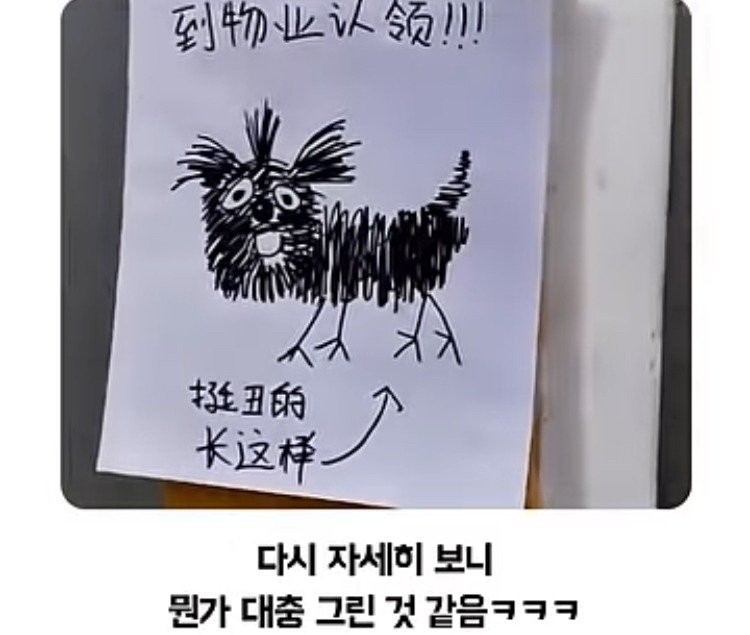 到物业认领!!!
挺丑的
长这样
다시 자세히 보니
뭔가 대충 그린 것 같음ㅋㅋㅋ